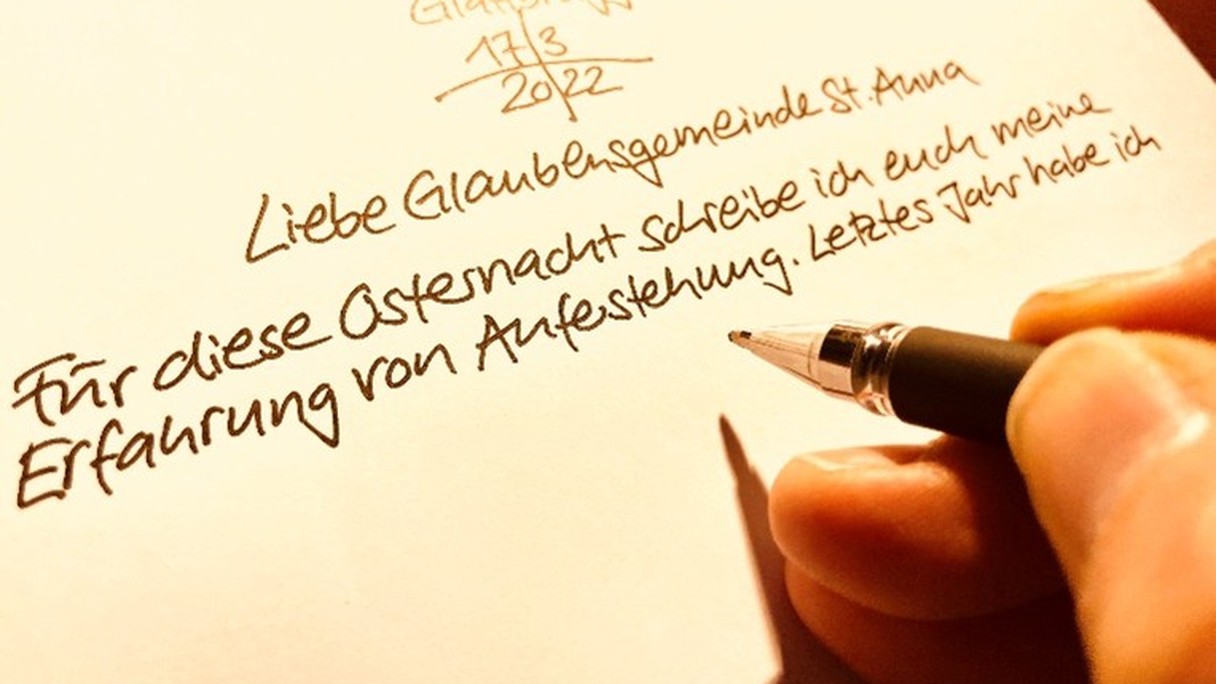 17 3
20 22
Liebe Glaubensgemeinde St. Anna
Für diese Osternacht schreibe ich euch meine
Erfahrung von Auferstehung. Letztes Jahr habe ich